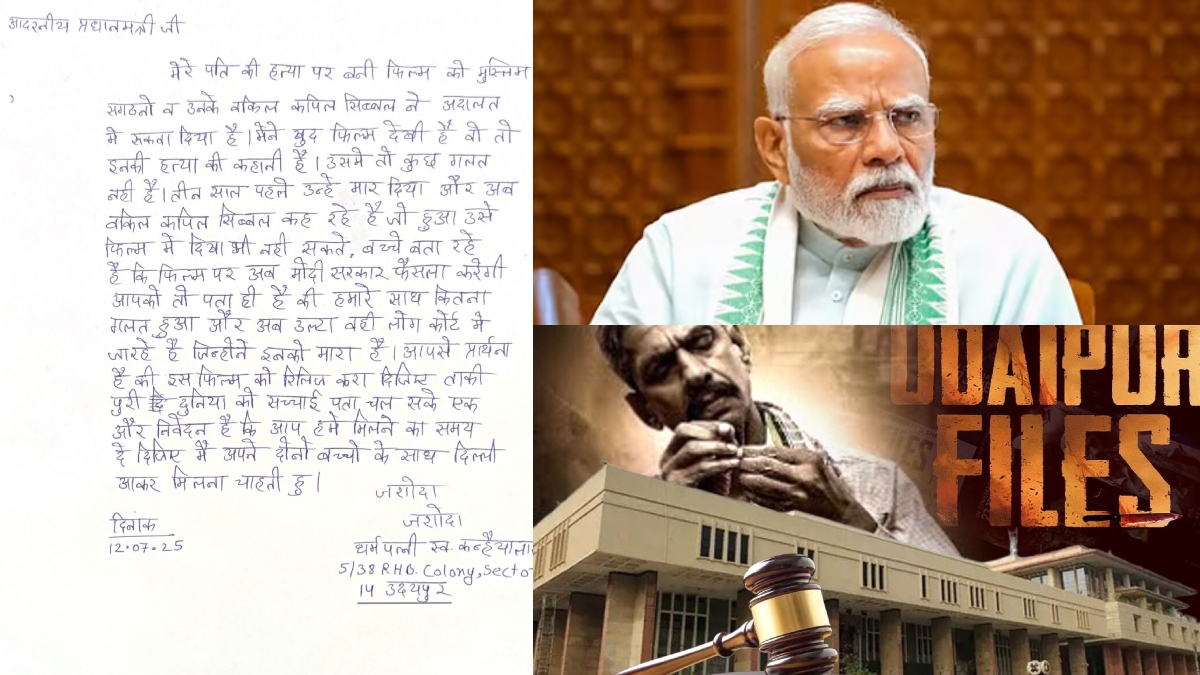 आदरनीय प्रधानमंत्री जी
मेरे पति की हत्या पर बनी फिल्म को मुस्लिम
संगठनो व उनके वकिल कपिल सिब्बल ने अदालत
मे रुकवा दिया है। मैने खुद फिल्म देखी है वो तो
इनकी हत्या की कहानी है। उसमे तो कुछ गलत
नही है। तीन साल पहले उन्हे मार दिया और अब
वकिल कपिल सिब्बल कह रहे है जो हुआ उसे
फिल्म मे दिखा भी नही सकते, बच्चे बता रहे
है कि फिल्म पर अब मोदी सरकार फैसला करेगी
आपको तो पता ही है की हमारे साथ कितना
गलत हुआ और अब उल्टा वही लोग कोर्ट मे
जारहे है जिन्होने इनको मारा है। आपसे प्रार्थना
है की इस फिल्म को रिलिज करा दिजिए ताकी
पुरी दुनिया को सच्चाई पता चल सके एक
और निवेदन है कि आप हमे मिलने का समय
दे दिजिए मै अपने दोनो बच्चो के साथ दिल्ली
आकर मिलना चाहती हु।
जशोदा
जशोदा
दिनांक
12.07.25
धर्मपत्नी स्व. कन्हैयाला
5/38 RHB. Colony, Secto
14 उदयपुर
UDAIPUR
FILES